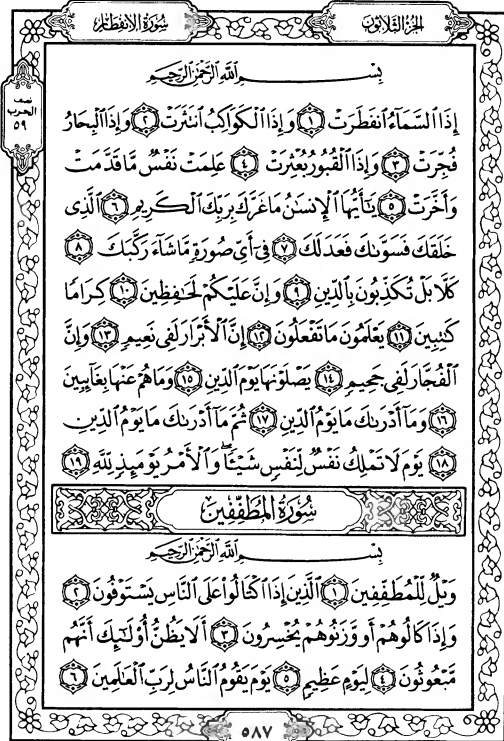 سُورَةُ الِانفِطَارِ
الجُزءُ الثَّلَاثُونَ
نصف
الحزب
٥٩
بِسْمِ اللَّهِ الرَّحْمَٰنِ الرَّحِيمِ
إِذَا السَّمَاءُ انفَطَرَتْ ١ وَإِذَا الْكَوَاكِبُ انتَثَرَتْ ٢ وَإِذَا الْبِحَارُ
فُجِّرَتْ ٣ وَإِذَا الْقُبُورُ بُعْثِرَتْ ٤ عَلِمَتْ نَفْسٌ مَّا قَدَّمَتْ
وَأَخَّرَتْ ٥ يَٰأَيُّهَا الْإِنسَٰنُ مَا غَرَّكَ بِرَبِّكَ الْكَرِيمِ ٦ الَّذِي
خَلَقَكَ فَسَوَّىٰكَ فَعَدَلَكَ ٧ فِي أَيِّ صُورَةٍ مَّا شَاءَ رَكَّبَكَ ٨
كَلَّا بَلْ تُكَذِّبُونَ بِالدِّينِ ٩ وَإِنَّ عَلَيْكُمْ لَحَٰفِظِينَ ١٠ كِرَامًا
كَٰتِبِينَ ١١ يَعْلَمُونَ مَا تَفْعَلُونَ ١٢ إِنَّ الْأَبْرَارَ لَفِي نَعِيمٍ ١٣ وَإِنَّ
الْفُجَّارَ لَفِي جَحِيمٍ ١٤ يَصْلَوْنَهَا يَوْمَ الدِّينِ ١٥ وَمَا هُمْ عَنْهَا بِغَائِبِينَ
١٦ وَمَا أَدْرَىٰكَ مَا يَوْمُ الدِّينِ ١٧ ثُمَّ مَا أَدْرَىٰكَ مَا يَوْمُ الدِّينِ
١٨ يَوْمَ لَا تَمْلِكُ نَفْسٌ لِّنَفْسٍ شَيْئًا ۖ وَالْأَمْرُ يَوْمَئِذٍ لِّلَّهِ ١٩
سُورَةُ الْمُطَفِّفِينَ
بِسْمِ اللَّهِ الرَّحْمَٰنِ الرَّحِيمِ
وَيْلٌ لِّلْمُطَفِّفِينَ ١ الَّذِينَ إِذَا اكْتَالُوا عَلَى النَّاسِ يَسْتَوْفُونَ ٢
وَإِذَا كَالُوهُمْ أَو وَّزَنُوهُمْ يُخْسِرُونَ ٣ أَلَا يَظُنُّ أُولَٰئِكَ أَنَّهُم
مَّبْعُوثُونَ ٤ لِيَوْمٍ عَظِيمٍ ٥ يَوْمَ يَقُومُ النَّاسُ لِرَبِّ الْعَٰلَمِينَ ٦
٥٨٧